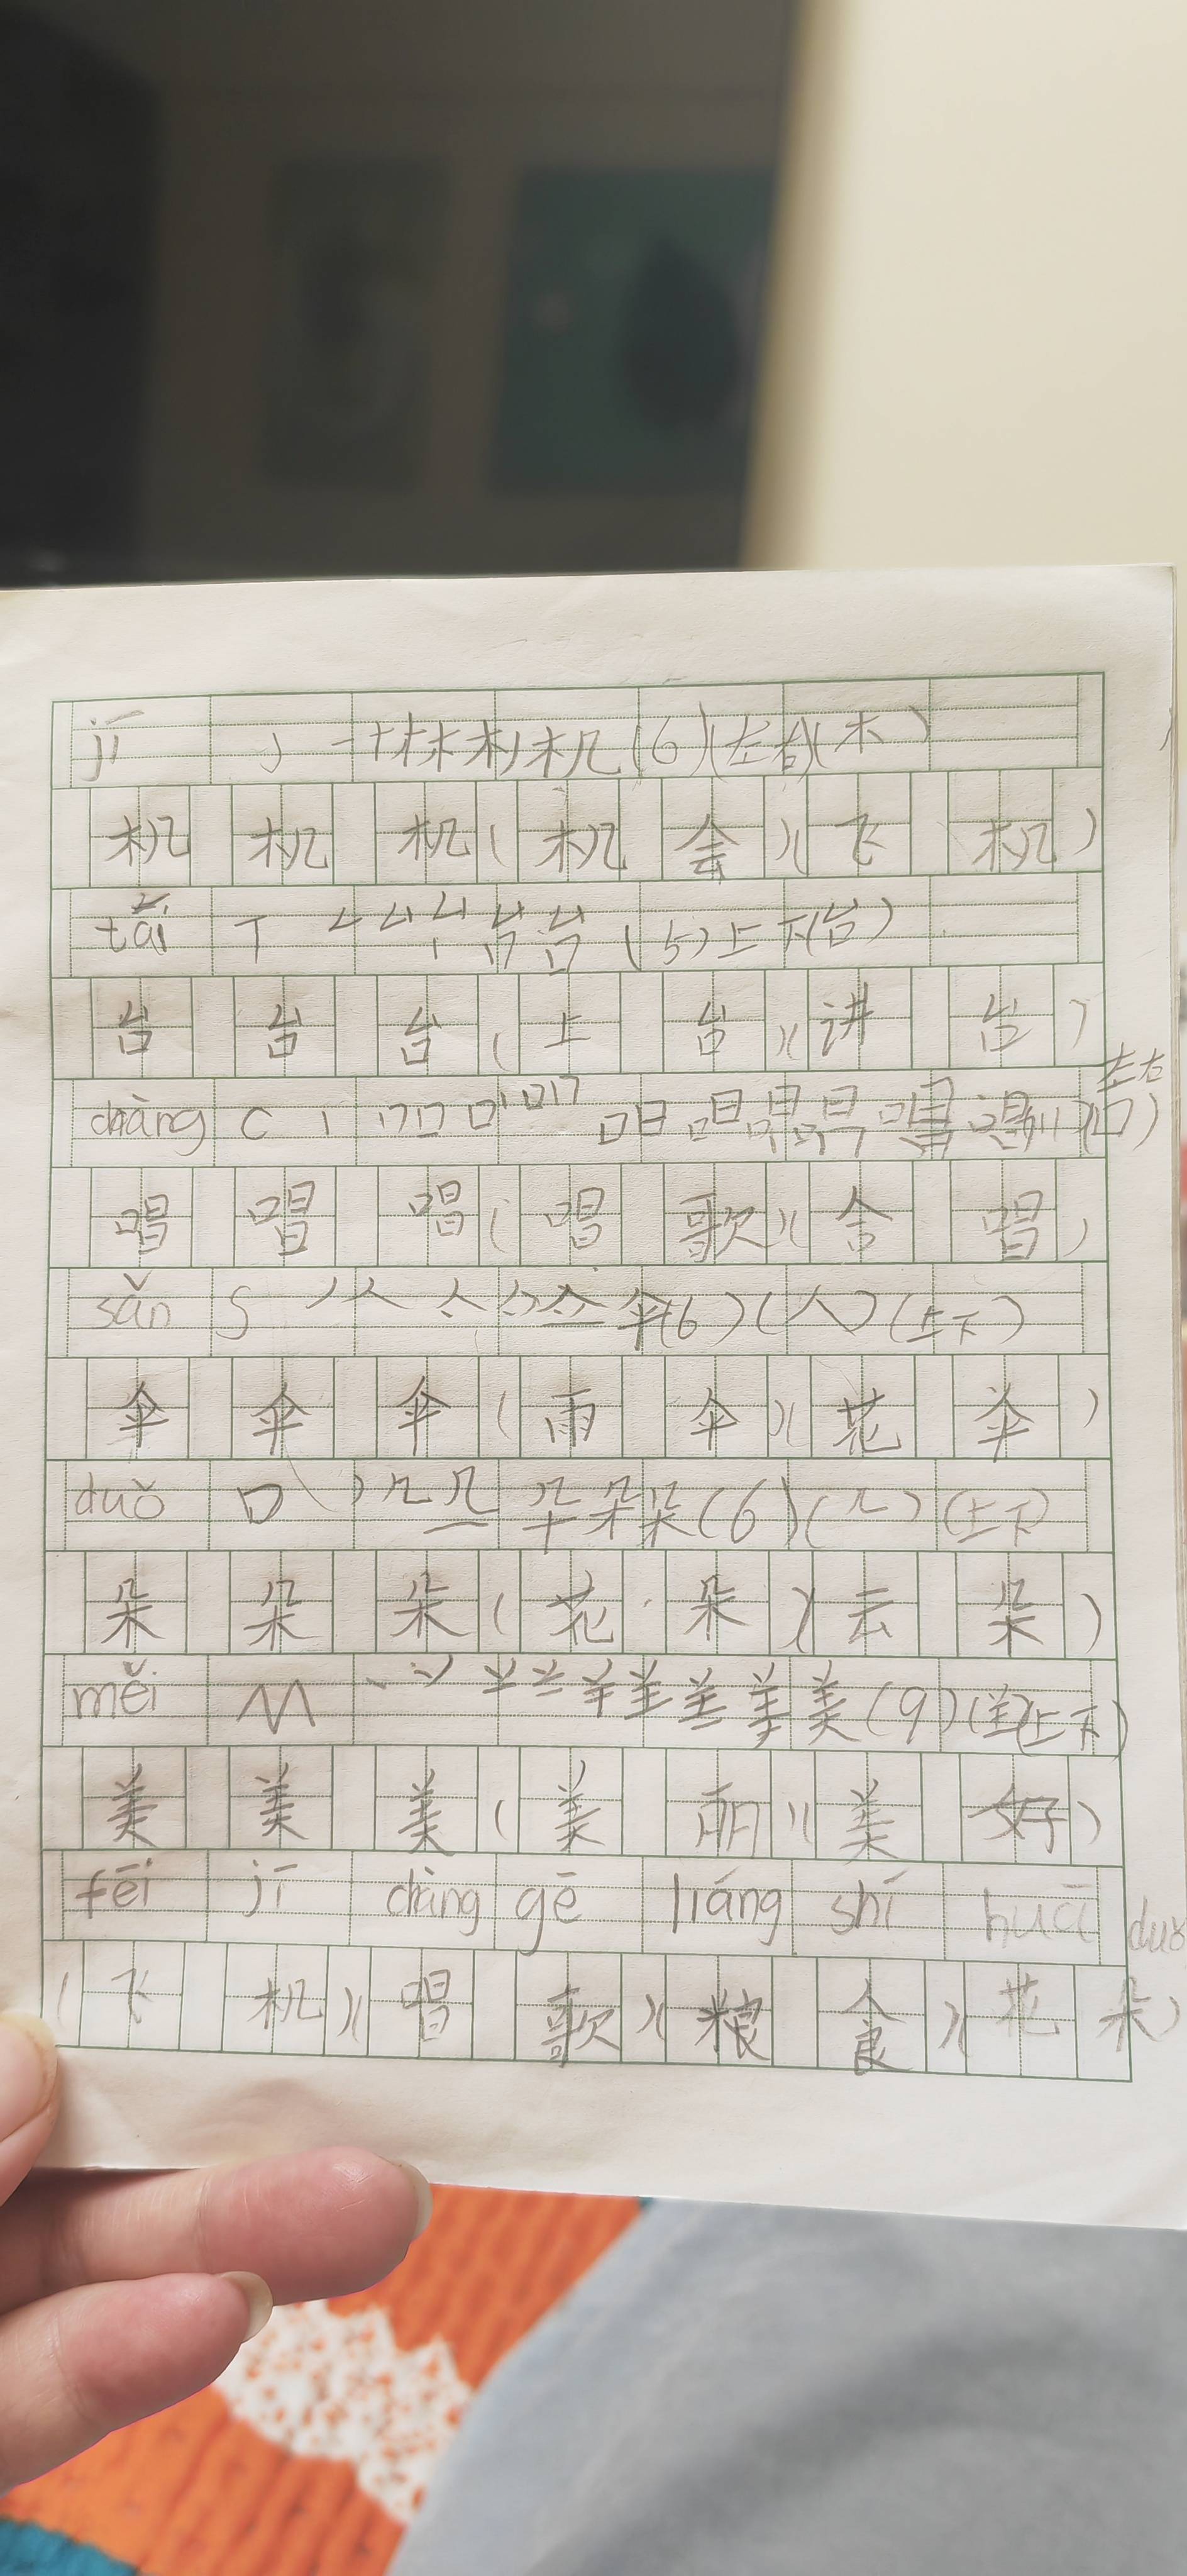 jī J 一十才木机机(6)(左右)(木)
机 机 机(机 会)(飞 机)
tái T ㄥ厶台台台(5)上下(台)
台 台 台(上 台)(讲 台)
chàng C 丨 口 唱 左右(口)
唱 唱 唱(唱 歌)(合 唱)
sǎn S 丿人 伞(6)(人)(上下)
伞 伞 伞(雨 伞)(花 伞)
duǒ D 丿几 朵朵(6)(几)(上下)
朵 朵 朵(花 朵)(云 朵)
měi M 丶丷 羊 美(9)(羊)(上下)
美 美 美(美 丽)(美 好)
fēi jī chàng gē liáng shí huā duǒ
(飞 机)(唱 歌)(粮 食)(花 朵)